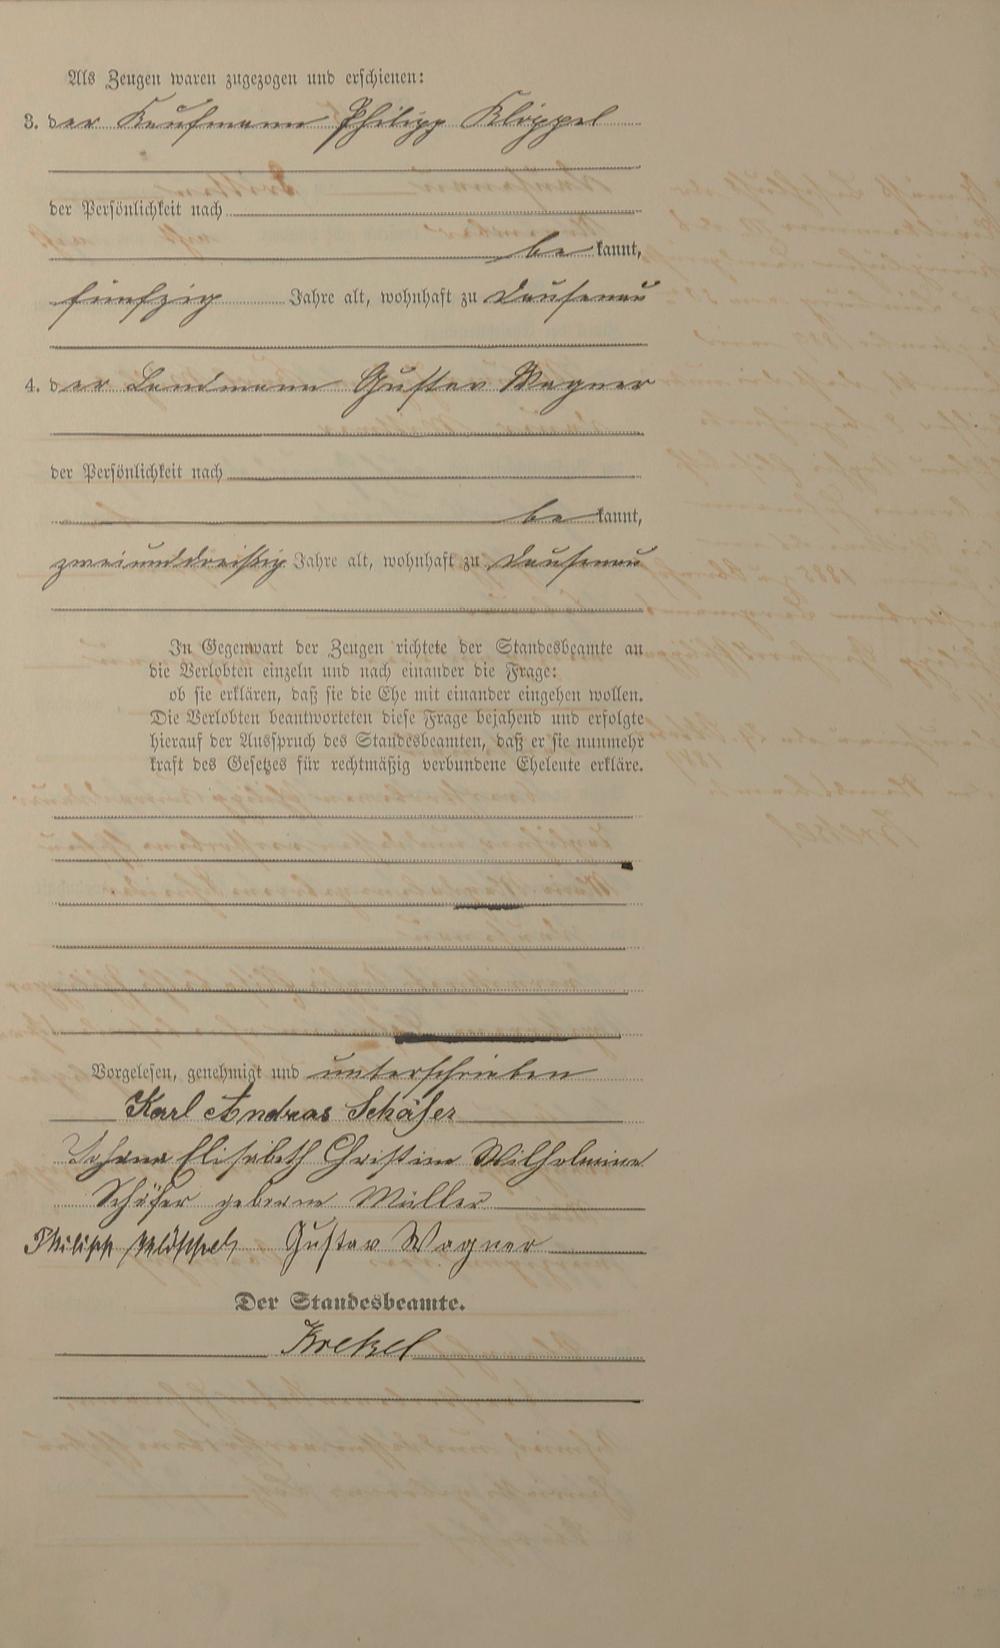 Als Zeugen waren zugezogen und erschienen:
3. der Kaufmann Philipp Klöppel
der Persönlichkeit nach
be kannt,
fünfzig Jahre alt, wohnhaft zu Dausenau
4. der Landmann Gustav Wagner
der Persönlichkeit nach
be kannt,
zweiunddreißig Jahre alt, wohnhaft zu Dausenau
In Gegenwart der Zeugen richtete der Standesbeamte an
die Verlobten einzeln und nach einander die Frage:
ob sie erklären, daß sie die Ehe mit einander eingehen wollen.
Die Verlobten beantworteten diese Frage bejahend und erfolgte
hierauf der Ausspruch des Standesbeamten, daß er sie nunmehr
kraft des Gesetzes für rechtmäßig verbundene Eheleute erkläre.
Vorgelesen, genehmigt und unterschrieben
Karl Andreas Schäfer
Johana Elisabeth Christine Wilhelmine
Schäfer geborne Müller
Philipp Klöppel Gustav Wagner
Der Standesbeamte.
Krekel